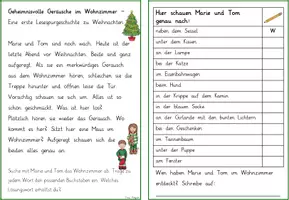 Geheimnisvolle Geräusche im Wohnzimmer –
Eine erste Lesespurgeschichte zu Weihnachten
Marie und Tom sind noch wach. Heute ist der
letzte Abend vor Weihnachten. Beide sind ganz
aufgeregt. Als sie ein merkwürdiges Geräusch
aus dem Wohnzimmer hören, schleichen sie die
Treppe hinunter und öffnen leise die Tür.
Vorsichtig schauen sie sich um. Alles ist so
schön geschmückt. Was ist hier los?
Plötzlich hören sie wieder das Geräusch. Wo
kommt es her? Sitzt hier eine Maus im
Wohnzimmer? Aufgeregt schauen sich die
beiden alles genau an.
Suche mit Marie und Tom das Wohnzimmer ab. Trage zu
jedem Wort den passenden Buchstaben ein. Welches
Lösungswort erhältst du?
Hier schauen Marie und Tom
genau nach:
neben dem Sessel W
unter dem Kissen
an der Lampe
bei der Katze
im Eisenbahnwagen
beim Hund
in der Krippe auf dem Kamin
in der blauen Socke
unter den Geschenken
bei den Geschenken
im Tannenbaum
unter der Puppe
am Fenster
Wen haben Marie und Tom im Wohnzimmer
entdeckt? Schreibe auf: